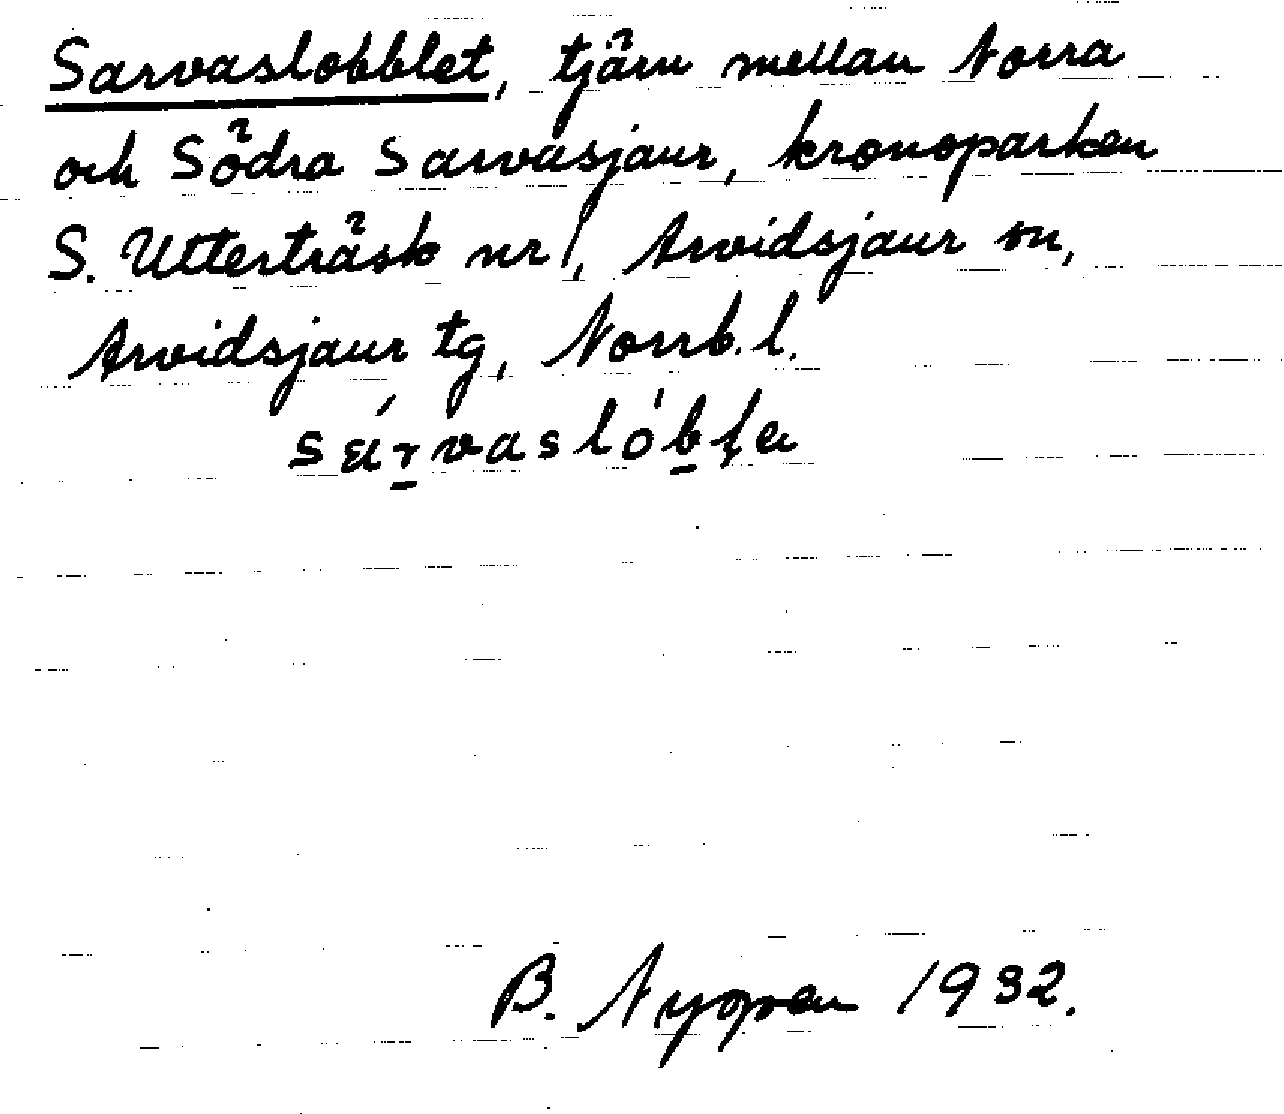 Sarvaslobblet, tjärn mellan Norra
och Södra Sarvasjaur, kronoparken
S. Utterträsk nr 1, Arvidsjaur sn,
Arvidsjaur tg, Norrb. l.
B. Nyopen 1932.